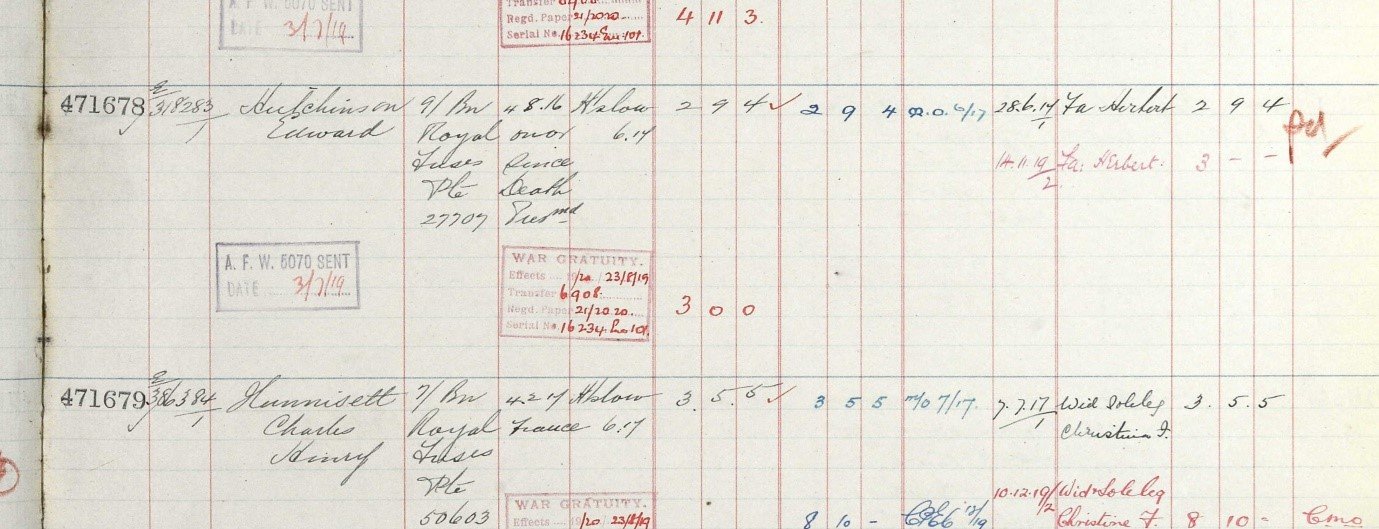 A. F. W. 5070 SENT
DATE 3/7/19
Regd. Paper 21/2020
Serial No. 16234
4 11 3.
471678 318283/1 Hutchinson 9/ Bn 4.8.16 Hslow 2 9 4 ✓ 2 9 4 6/17 28.6.17/1 Fa Herbert 2 9 4
Edward Royal on or 6.17
Fuses Since
Pte Death
27707 Presmd
14.11.19/2 Fa: Herbert. 3 - -
A. F. W. 5070 SENT
DATE 3/7/19
WAR GRATUITY.
Effects 19/20 23/8/19
Transfer 6908
Regd. Paper 21/20.20
Serial No. 16234
3 0 0
471679 386384/1 Hunnisett 7/ Bn 4.2.17 Hslow 3. 5. 5 ✓ 3 5 5 7/17. 7.7.17/1 Wid Soleleg 3. 5. 5
Charles Royal France 6.17 Christina F.
Henry Fuses
Pte
50603
WAR GRATUITY.
Effects 19/20 23/8/19
8 10 - 12/19 10.12.19/2 Wid & Soleleg
Christine F. 8 10 -